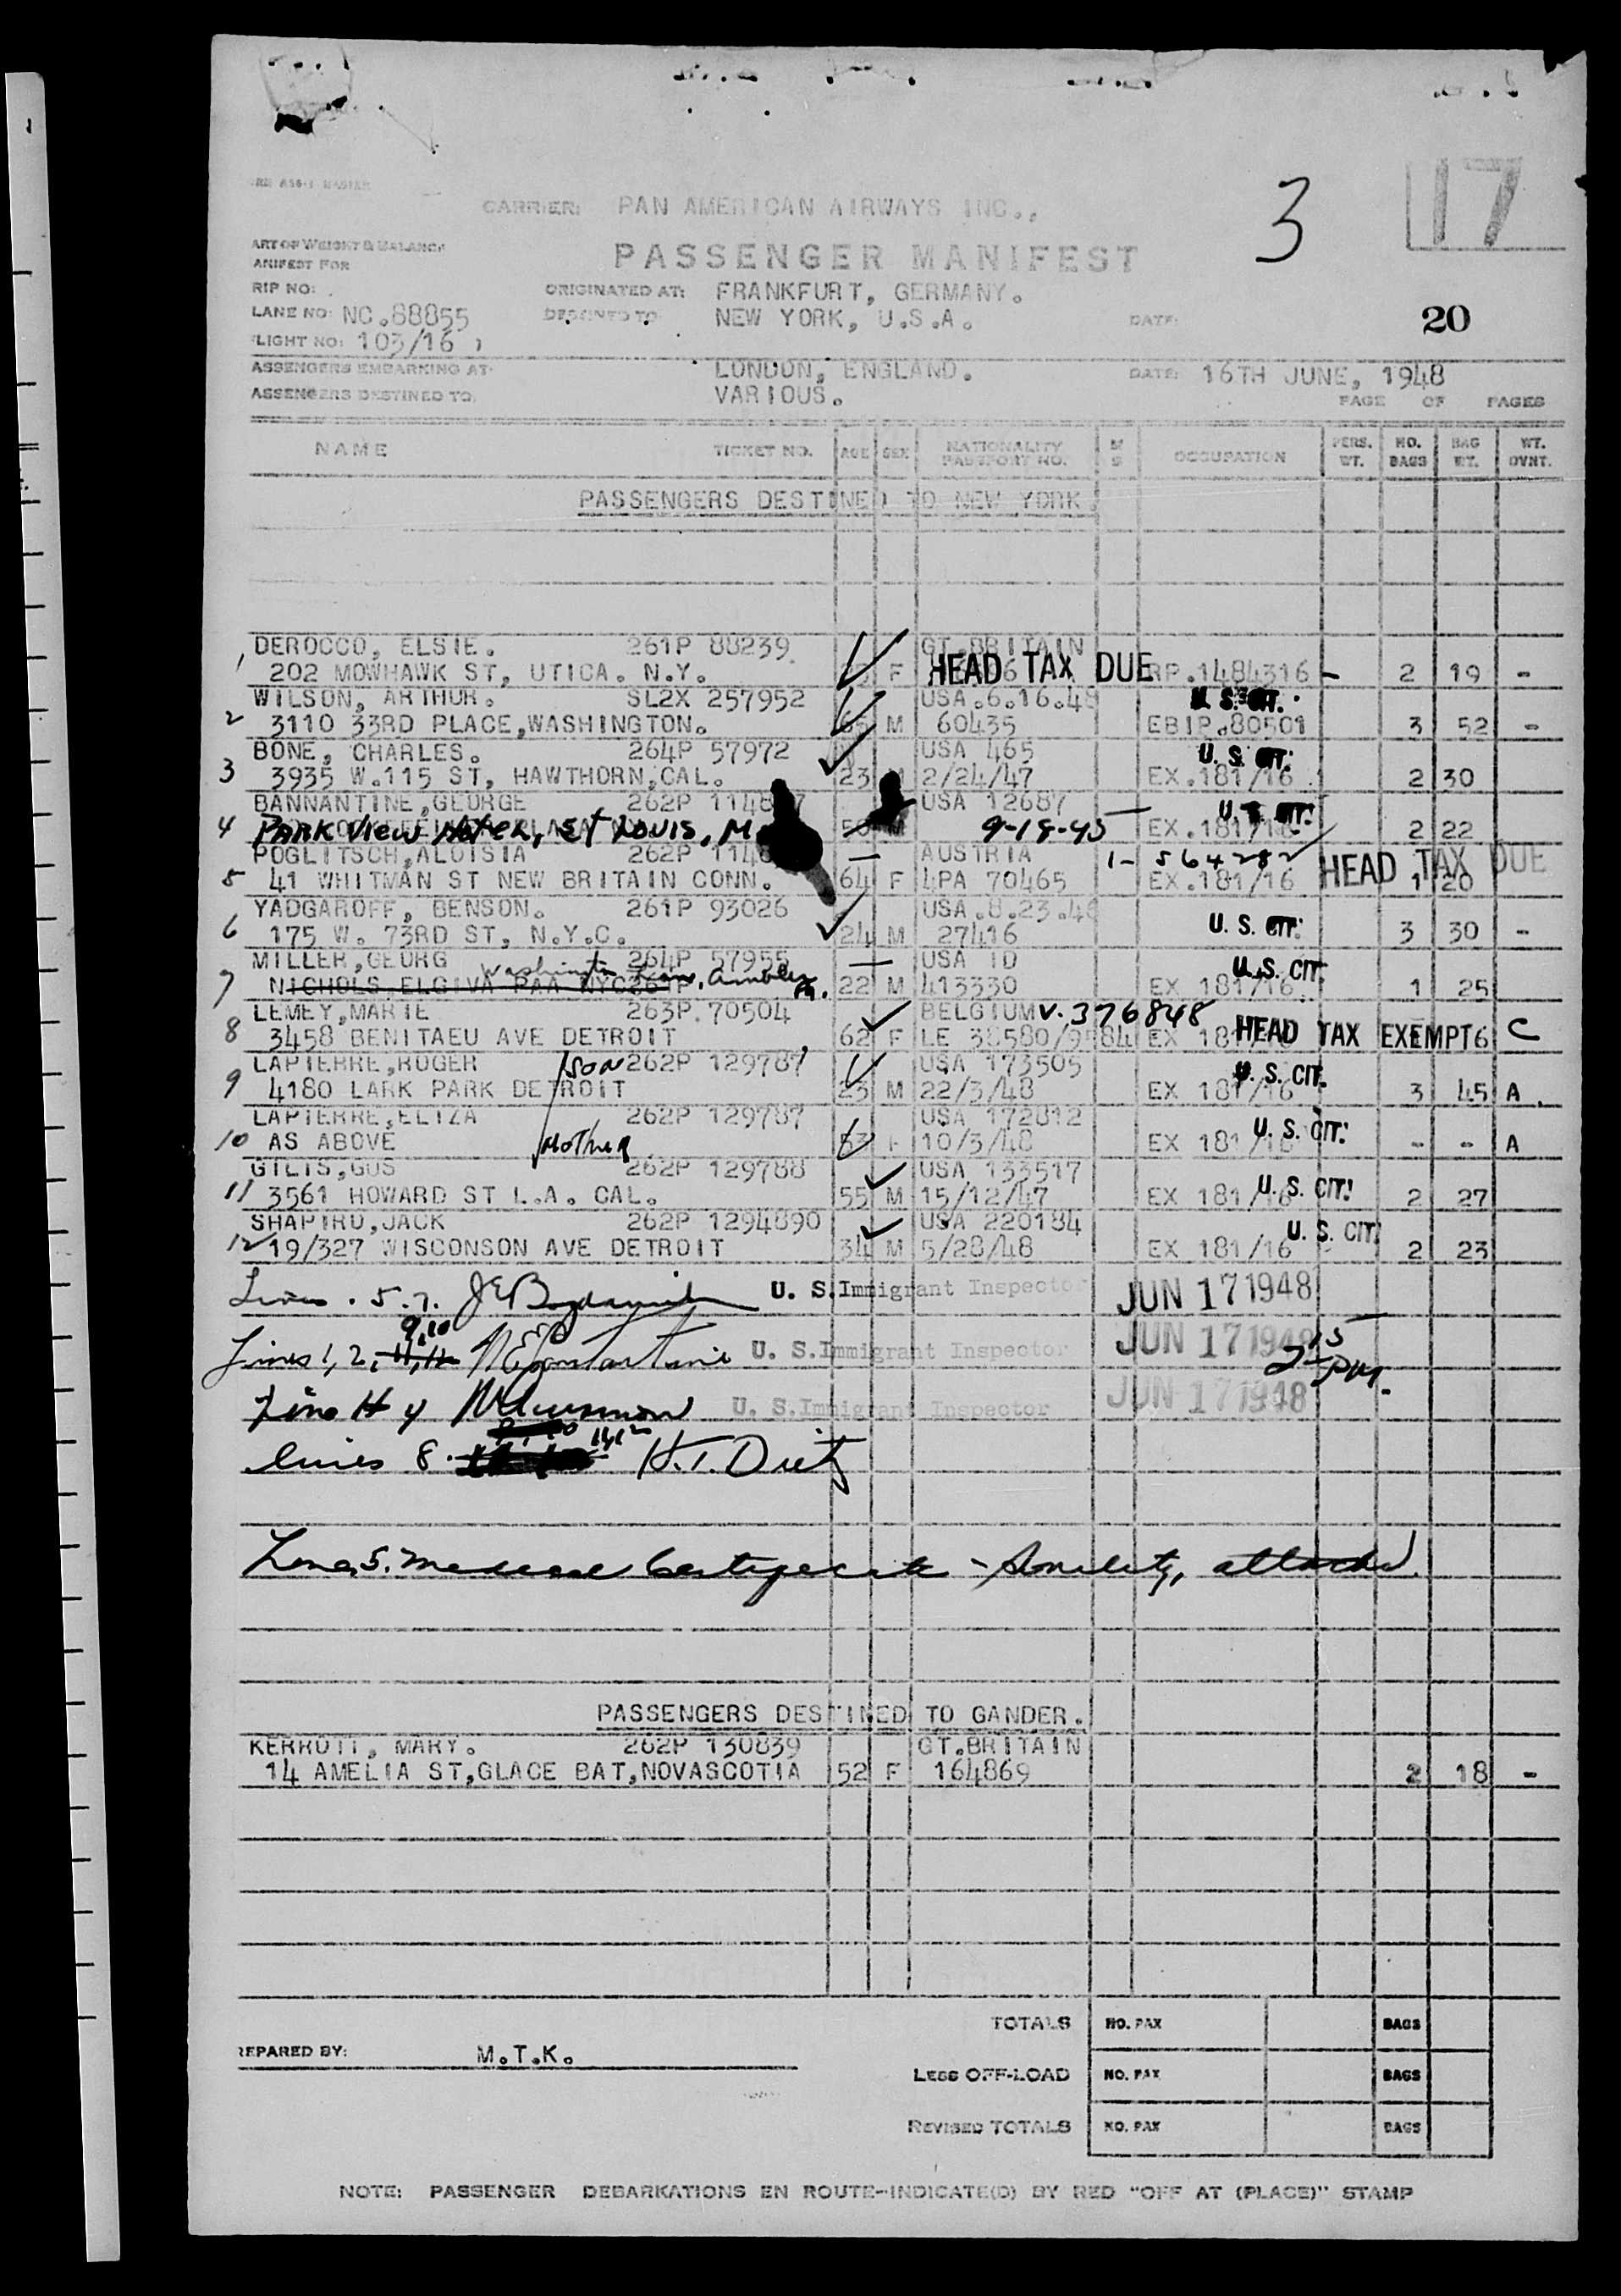 3
17
CARRIER: PAN AMERICAN AIRWAYS INC.,
ART OF WEIGHT & BALANCE
ANIFEST FOR
PASSENGER MANIFEST
RIP NO:
ORIGINATED AT: FRANKFURT, GERMANY.
LANE NO: NC.88855
DESTINED TO NEW YORK, U.S.A.
DATE:
20
LIGHT NO: 103/16
ASSENGERS EMBARKING AT: LONDON, ENGLAND.
DATE: 16TH JUNE, 1948
ASSENGERS DESTINED TO: VARIOUS.
PAGE OF PAGES
NAME TICKET NO. AGE SEX NATIONALITY PASSPORT NO. M S OCCUPATION PERS. WT. NO. BAGS BAG WT. WT. OVNT.
PASSENGERS DESTINED TO NEW YORK.
DEROCCO, ELSIE. 261P 88239 GT.BRITAIN
1 202 MOWHAWK ST, UTICA. N.Y. F HEAD TAX DUE RP.1484316 - 2 19 -
WILSON, ARTHUR. SL2X 257952 USA.6.16.48 U. S. CIT.
2 3110 33RD PLACE,WASHINGTON. M 60435 EBIP.80501 3 52 -
BONE, CHARLES. 264P 57972 USA 465 U. S. CIT.
3 3935 W.115 ST, HAWTHORN,CAL. 23 M 2/24/47 EX.181/16 2 30
BANNANTINE,GEORGE 262P 1148 7 USA 12687 U. S. CIT.
4 PARK VIEW HOTEL, ST LOUIS, M M 9-18-45 EX.181/16 2 22
POGLITSCH,ALOISIA 262P 114 AUSTRIA 1- 564282 HEAD TAX DUE
5 41 WHITMAN ST NEW BRITAIN CONN. 64 F 4PA 70465 EX.181/16 1 20
YADGAROFF, BENSON. 261P 93026 USA.8.23.46
6 175 W. 73RD ST, N.Y.C. 24 M 27416 U. S. CIT. 3 30 -
MILLER,GEORG 264P 57955 USA ID U. S. CIT.
Washington Lane, Ambler Pa.
7 NICHOLS,ELGIVA PAA NYC261P 22 M 413330 EX 181/16 1 25
LEMEY,MARIE 263P.70504 BELGIUM V.376848
8 3458 BENITAEU AVE DETROIT 62 F LE 38580/9584 EX 18 HEAD TAX EXEMPT 6 C
LAPIERRE,ROGER SON 262P 129787 USA 173505 U. S. CIT.
9 4180 LARK PARK DETROIT 23 M 22/3/48 EX 181/16 3 45 A.
LAPIERRE,ELIZA 262P 129787 USA 172812
10 AS ABOVE MOTHER 53 F 10/3/48 EX 181/16 U. S. CIT. - - A
GILIS,GUS 262P 129788 USA 133517
11 3561 HOWARD ST L.A. CAL. 55 M 15/12/47 EX 181/16 U. S. CIT. 2 27
SHAPIRO,JACK 262P 1294890 USA 220184 U. S. CIT.
12 19/327 WISCONSON AVE DETROIT 34 M 5/28/48 EX 181/16 2 23
Lines . 5.7. U. S. Immigrant Inspector JUN 17 1948
9,10
Lines 1, 2, 11,12 U. S. Immigrant Inspector JUN 17 1948
2 15 PM.
Line # 4 U. S. Immigrant Inspector JUN 17 1948
lines 8. 11,12 H.T. Dietz
Line 5. Medical Certificate - Senility, attached.
PASSENGERS DESTINED TO GANDER.
KERRUTT, MARY. 262P 130839 GT.BRITAIN
14 AMELIA ST,GLACE BAT,NOVASCOTIA 52 F 164869 2 18 -
TOTALS NO. PAX BAGS
REPARED BY: M.T.K.
LESS OFF-LOAD NO. PAX BAGS
REVISED TOTALS NO. PAX BAGS
NOTE: PASSENGER DEBARKATIONS EN ROUTE-INDICATE(D) BY RED "OFF AT (PLACE)" STAMP